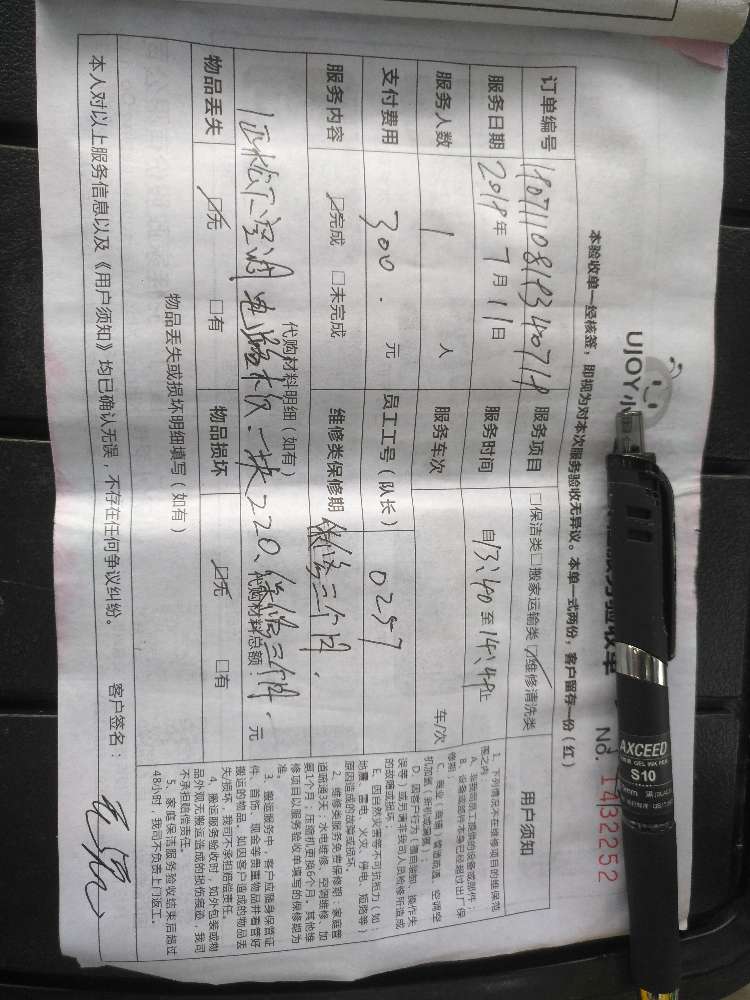 UJOY小
服务验收单
No. 1432252
本验收单一经核签，即视为对本次服务验收无异议。本单一式两份，客户留存一份（红）
订单编号
服务项目 □保洁类□搬家运输类☑维修清洗类
服务日期 2018年7月11日
服务时间 自13:40至14:48止
服务人数 1 人
服务车次 车/次
支付费用 300. 元
员工工号（队长） 0257
服务内容 ☑完成 □未完成
维修类保修期 保修三个月.
代购材料明细（如有）
空调电路板一块220、保修三个月.
代购材料总额： 元
物品丢失 ☑无 □有
物品损坏 ☑无 □有
物品丢失或损坏明细填写（如有）
本人对以上服务信息以及《用户须知》均已确认无误，不存在任何争议纠纷。
客户签名：
用户须知
1、下列情况不在维修项目的维保范
围之内：
A、非我司员工更换的设备或部件；
B、设备或部件本身已经超过出厂保
修期；
D、因客户行为（擅自踏加、操作失
误等）或另请非我司人员检修所造成
的故障或损坏；
E、因自然灾害等不可抗拒力（如：
地震、雷电、火灾、停电、短路等）
原因造成的故障或损坏
2、维修类服务免费保修期：家庭管
道疏通3天；水电维修、空调维修、加
氟1个月；压缩机更换6个月；其他维
修项目以服务验收单填写的保修期为
准。
3、搬运服务中，客户应随身保管证
件、首饰、现金等贵重物品并看管好
搬运的物品，如因客户造成的物品丢
失/损坏，我司不承担赔偿责任。
4、搬运服务验收时，如外包装或物
品外观无搬运造成的损伤痕迹，我司
不承担赔偿责任。
5、家庭保洁服务验收结束后超过
48小时，我司不负责上门返工。
AXCEED
GEL INK PEN
S10